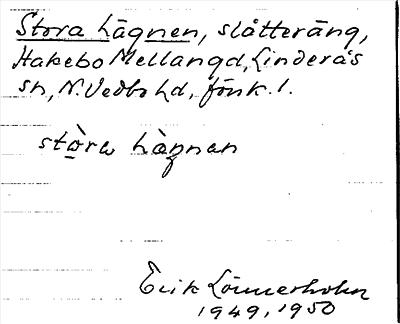 Stora hägnen, slåtteräng,
Hakebo Mellangd, Linderås
sn, N. Vedbo hd, Jönk. l.
stòra hàgnan
Erik Lönnerholm
1949, 1950